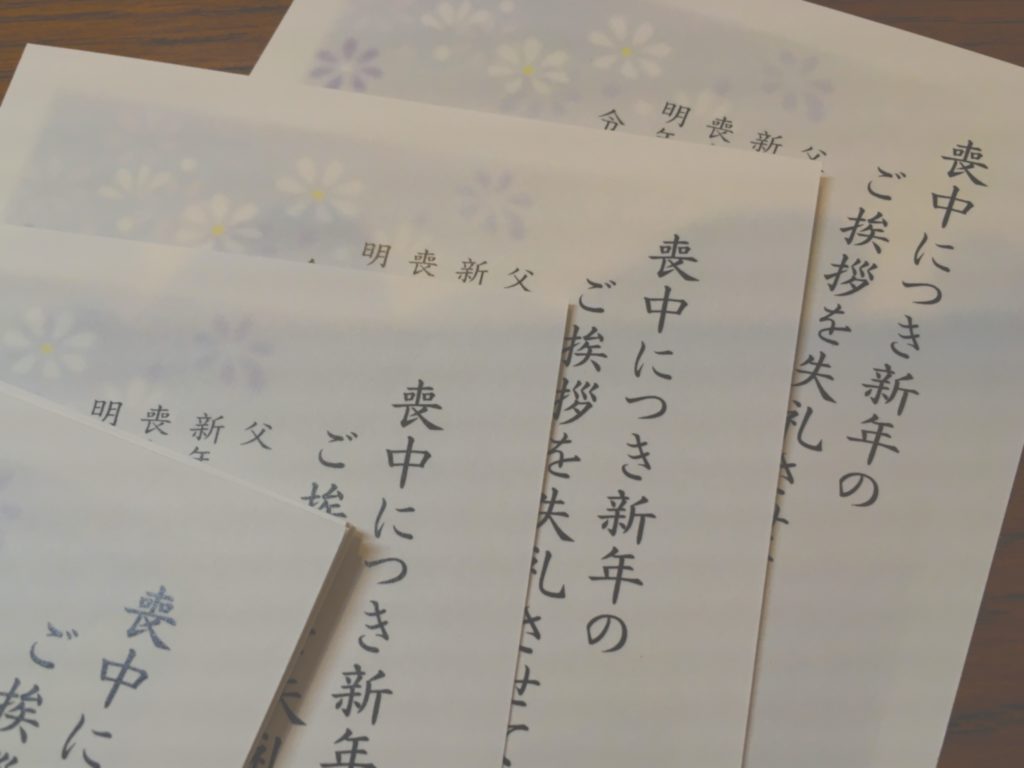 喪中につき新年の
ご挨拶を失礼させ
父
新
喪
明
令
喪中につき新年の
ご挨拶を失礼させて
父
新
喪
明
喪中につき新年
ご挨
父
新年
喪
明
喪中に
ご挨拶